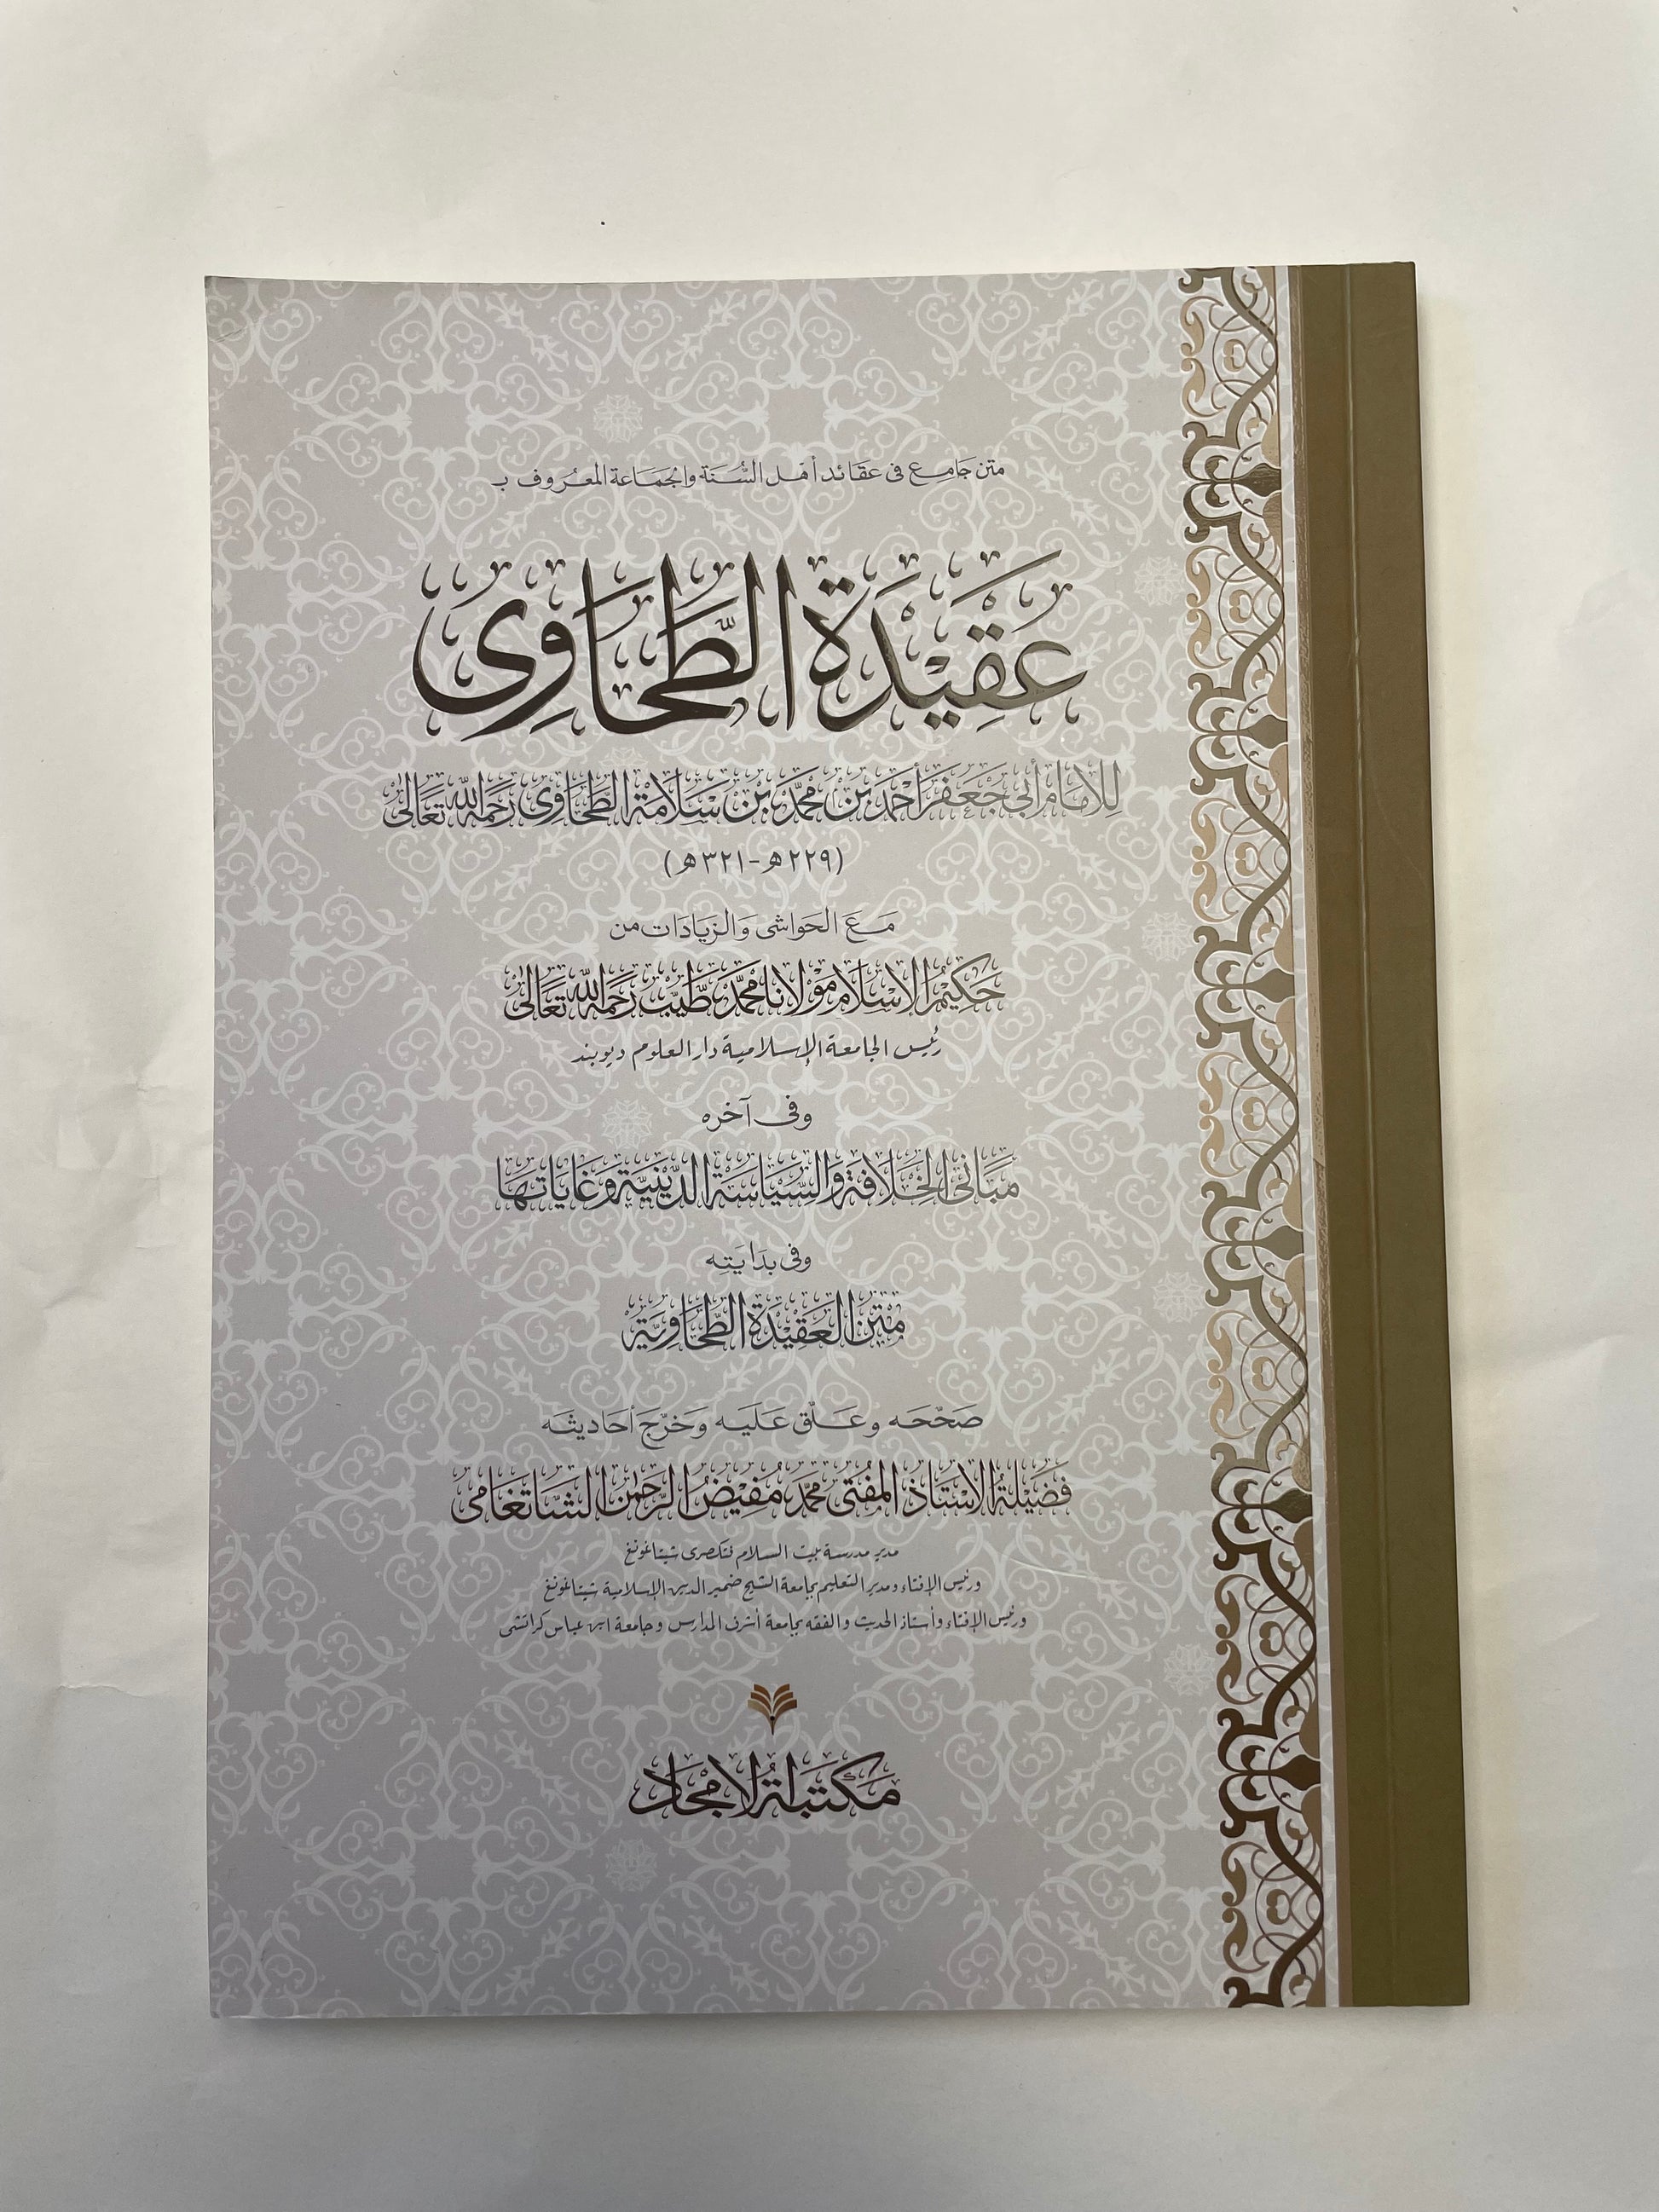 متن جامع في عقائد أهل السُّنة والجماعة المعروف بـ
عَقِيْدَة الطَّحَاوِى
لِلإمَام أبي جَعْفَر أحْمَد بْن مُحَمَّد بْن سَلَامَة الطَّحَاوِى رَحِمَهُ اللهُ تَعَالىٰ
(٢٢٩ھ-٣٢١ھ)
مَعَ الحَواشى وَالزيَادَات من
حَكِيْمُ الإسْلَام مَوْلَانا مُحَمَّد طَيِّبْ رَحِمَهُ اللهُ تَعَالىٰ
رئيس الجامعة الإسلامية دار العلوم ديوبند
وفى آخره
مَبَانى الخِلَافَة وَالسِّيَاسَة الدِّيْنِيَّة وَغَايَاتهَا
وفى بدَايَتِه
مَتْن العَقِيْدَة الطَّحَاوِيَّة
صَحّحَه وعَلّق عَلَيه وَخَرّجَ أحَاديثَه
فَضِيْلَةُ الاسْتَاذ المُفْتى مُحَمَّد مُفِيْضُ الرَّحمٰن الشَّاتغَامى
مدير مدرسة بيت السلام فتكصرى شيتاغونغ
ورئيس الإفتاء ومدير التعليم بجامعة الشيخ ضمير الدين الإسلامية شيتاغونغ
ورئيس الإفتاء وأستاذ الحديث والفقه بجامعة أشرف المدارس وجامعة ابن عباس كراتشى
مَكْتَبَةُ الامْجَاد